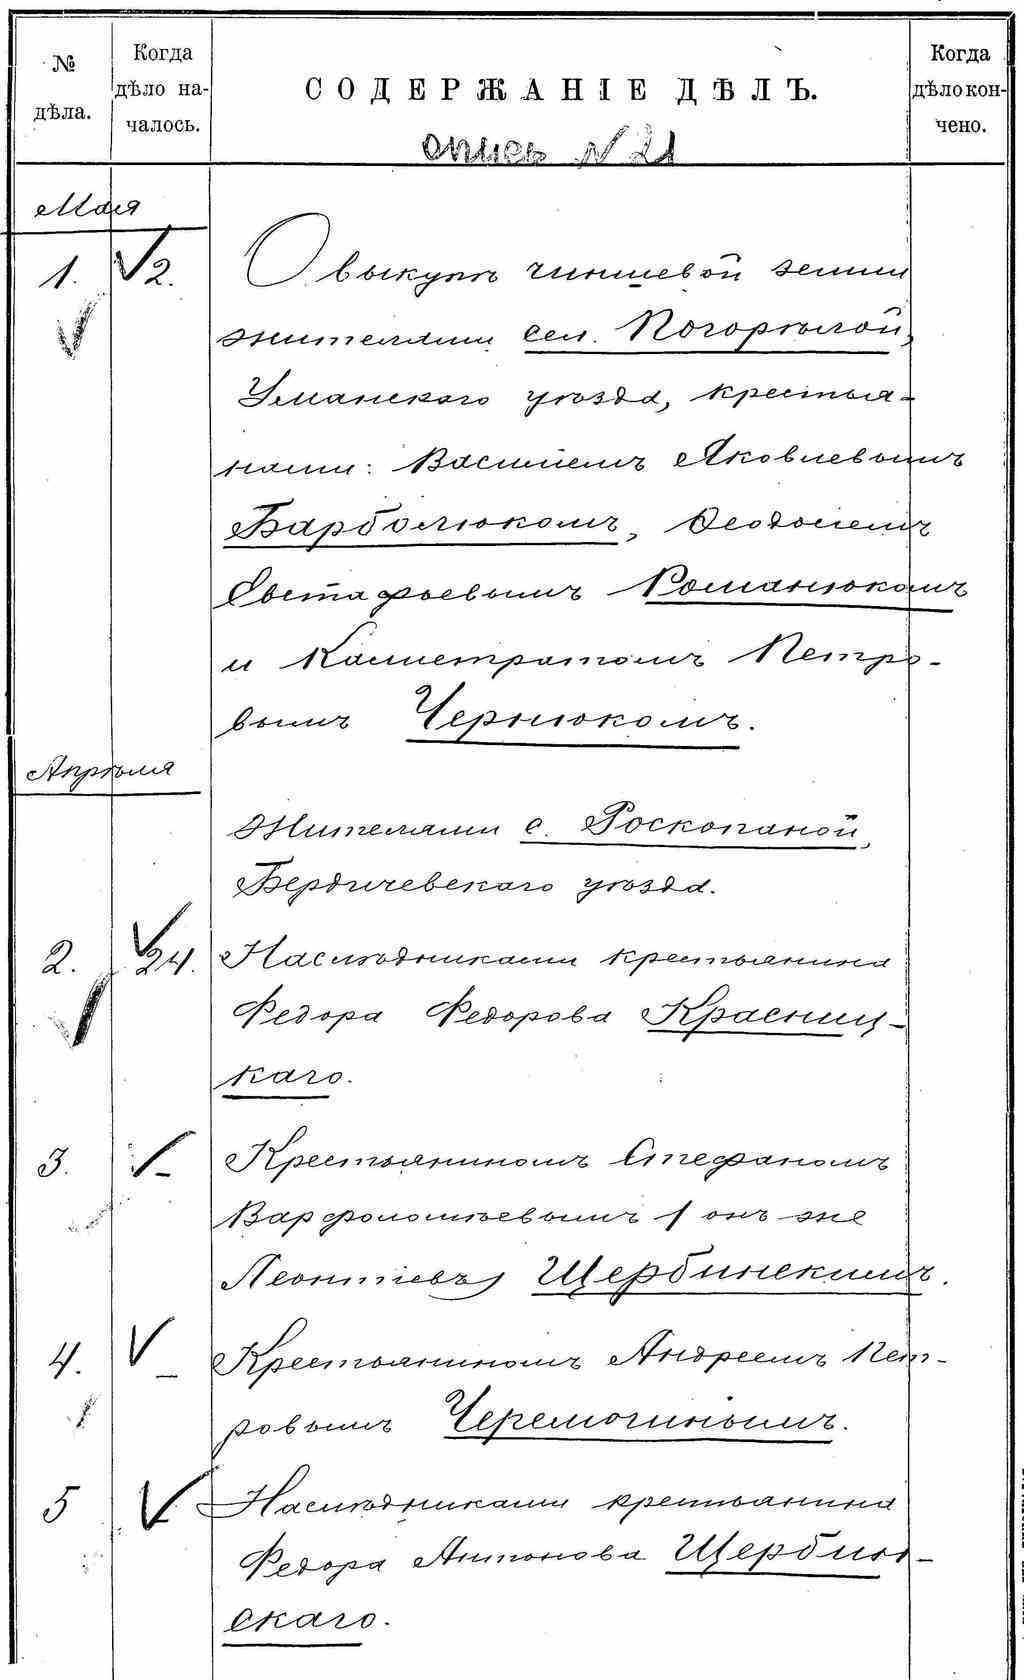 № дѣла.
Когда дѣло на-
чалось.
СОДЕРЖАНІЕ ДѢЛЪ.
Когда дѣло кон-
чено.
опись N 21
Мая
1. 2. О выкупѣ чиншевой земли
жителями сел. Погорѣлой,
Уманскаго уѣзда, крестья-
нами: Василіемъ Яковлевымъ
Барболюкомъ, Ѳеодосіемъ
Евстафьевымъ Романюкомъ
и Калистратомъ Петро-
вымъ Чернюкомъ.
Апрѣля
Жителями с. Роскопаной,
Бердичевскаго уѣзда.
2. 24. Наслѣдниками крестьянина
Федора Федорова Красниц-
каго.
3. – Крестьяниномъ Стефаномъ
Варфоломѣевымъ (онъ же
Леонтіевъ) Щербинскимъ.
4. – Крестьяниномъ Андреемъ Пет-
ровымъ
5 – Наслѣдниками крестьянина
Федора Антонова Щербин-
скаго.